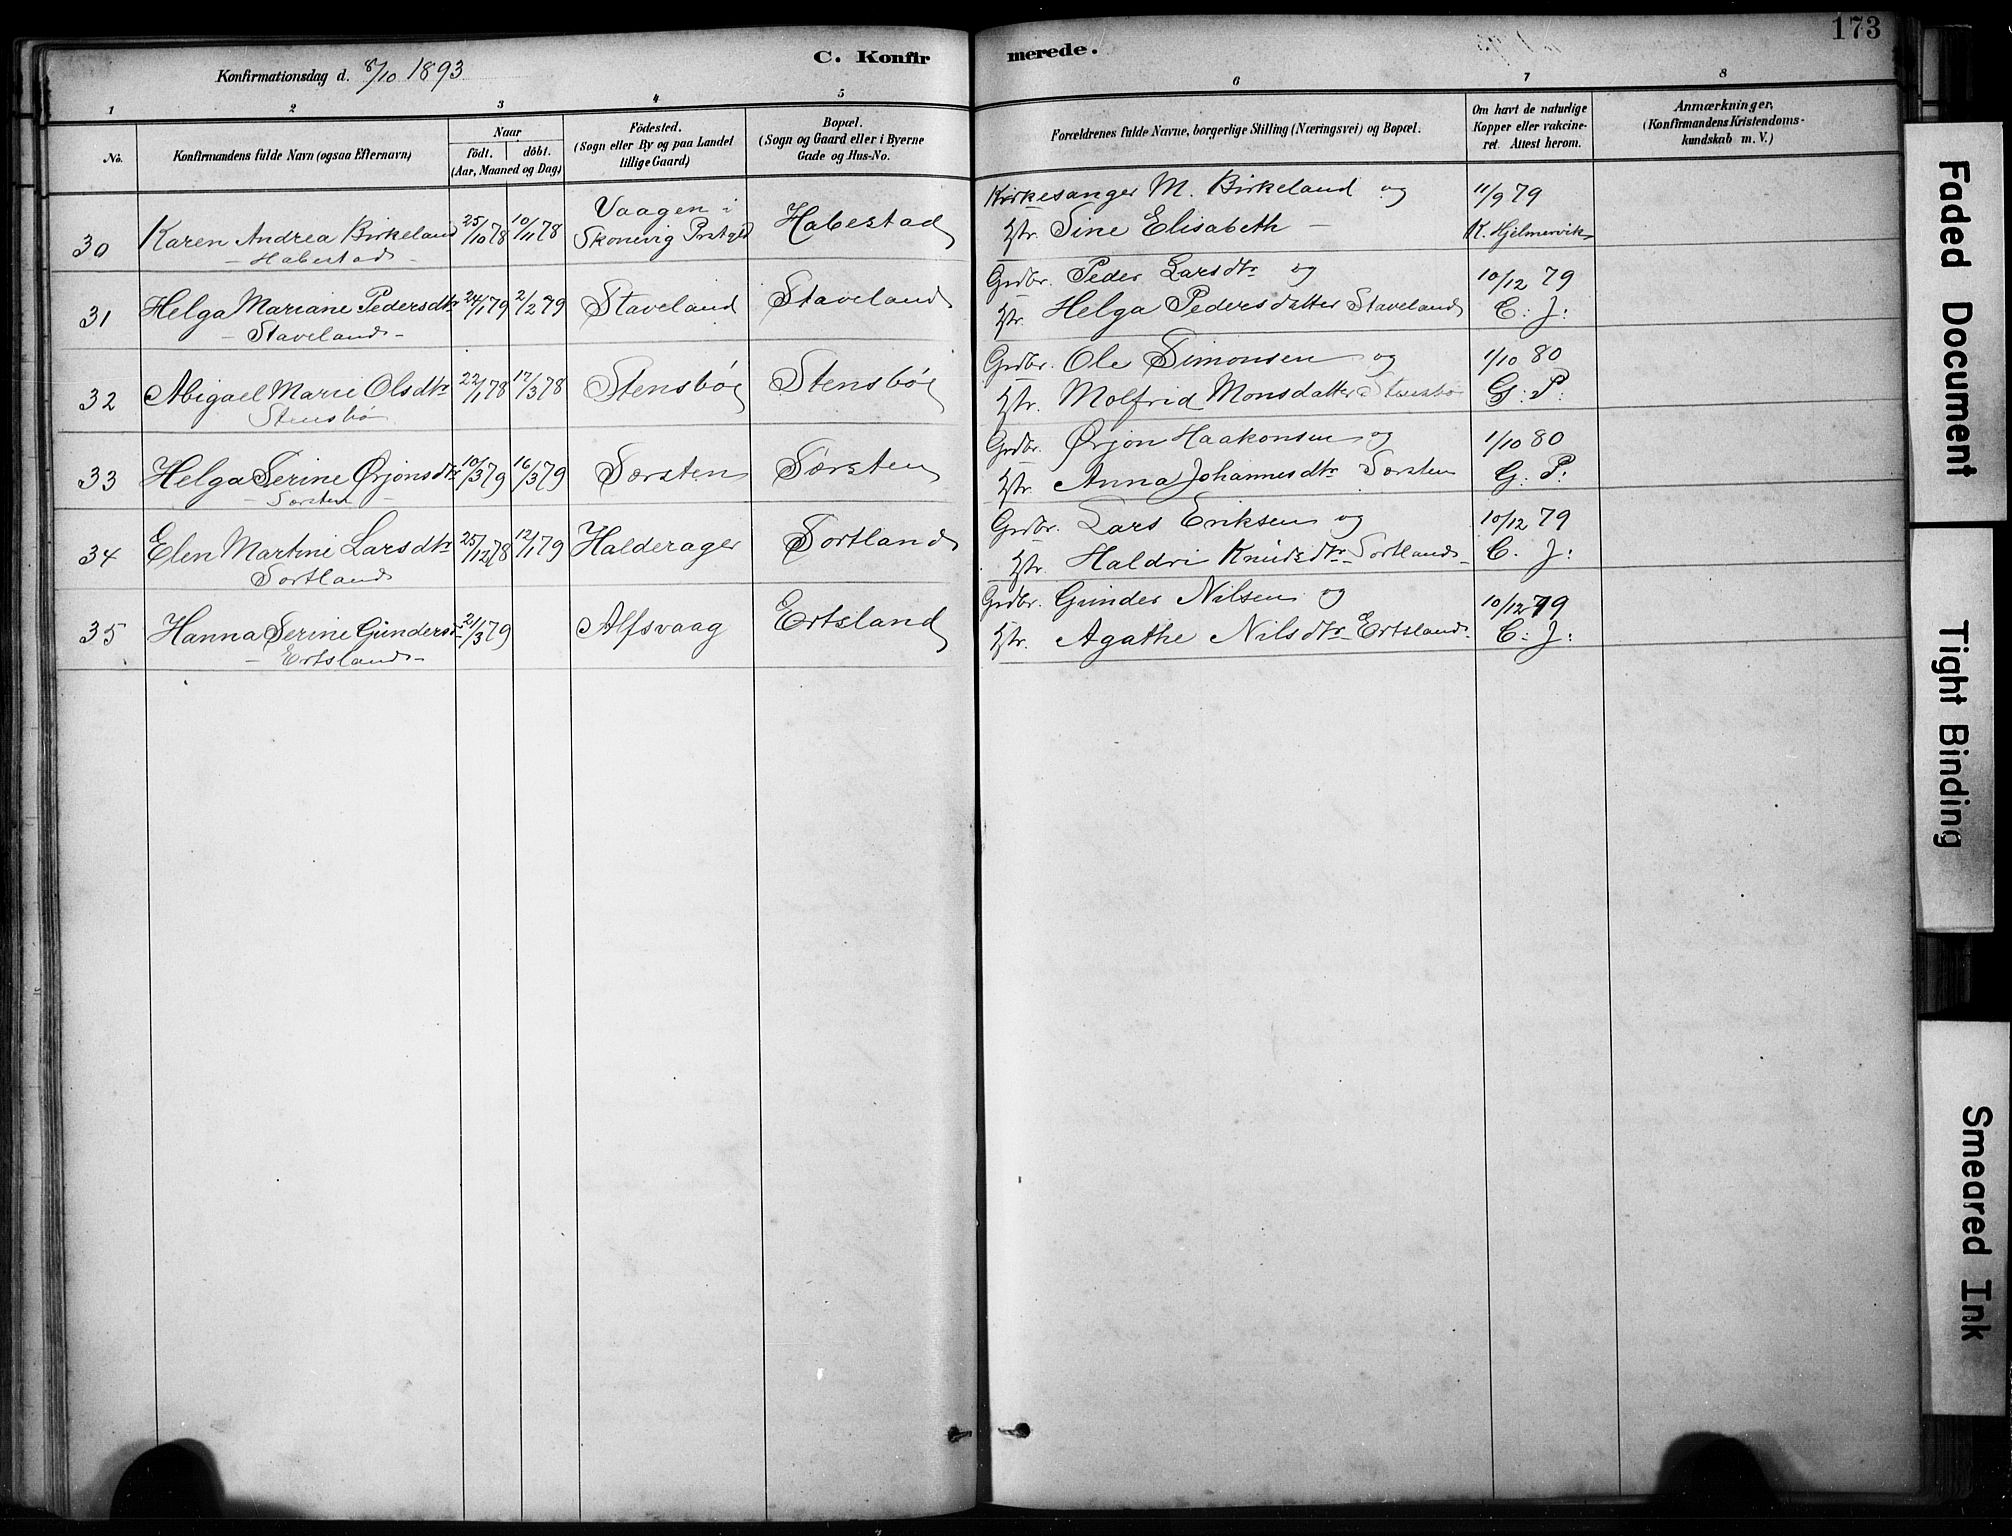 173
C. Konfirmerede.
Konfirmationsdag d. 8/10 1893
1 2 3 4 5 6 7 8
No.
Konfirmandens fulde Navn (ogsaa Efternavn)
Naar
födt. döbt.
(Aar, Maaned og Dag)
Födested.
(Sogn eller By og paa Landet
tillige Gaard)
Bopæl.
(Sogn og Gaard eller i Byerne
Gade og Hus-No.
Forældrenes fulde Navne, borgerlige Stilling (Næringsvei) og Bopæl.
Om havt de naturlige
Kopper eller vakcine-
ret. Attest herom.
Anmærkninger.
(Konfirmandens Kristendoms-
kundskab m. V.)
30 Karen Andrea Birkeland 25/10 78 10/11 78 Vaagen i Habestad Kirkesanger M. Birkeland og 11/9 79
- Habestad - Skonevig Prstgld Hstr. Sine Elisabeth - K. Hjelmervik
31 Helga Mariane Pedersdtr 24/1 79 2/2 79 Staveland Staveland Grdbr. Peder Larsdtr og 10/12 79
- Staveland - Hstr. Helga Pedersdatter Staveland C. J:
32 Abigael Marie Olsdtr 22/1 78 17/3 78 Stensbø Stensbø Grdbr. Ole Simonsen og 1/10 80
Stensbø Hstr. Molfrid Monsdatter Stensbø G: P:
33 Helga Serine Ørjonsdtr 10/3 79 16/3 79 Særsten Særsten Grdbr. Ørjon Haakonsen og 1/10 80
- Særsten - Hstr. Anna Johannesdtr Særsten G: P:
34 Elen Martine Larsdtr 25/12 78 12/1 79 Halderager Sortland Grdbr. Lars Eriksen og 10/12 79
Sortland Hstr. Haldri Knudsdtr Sortland C. J:
35 Hanna Serine Gundersdtr 21/3 79 Alfsvaag Ertsland Grdbr. Gunder Nilsen og 10/12 79
- Ertsland - Hstr. Agathe Nilsdtr Ertsland C: J:
Faded Document
Tight Binding
Smeared Ink